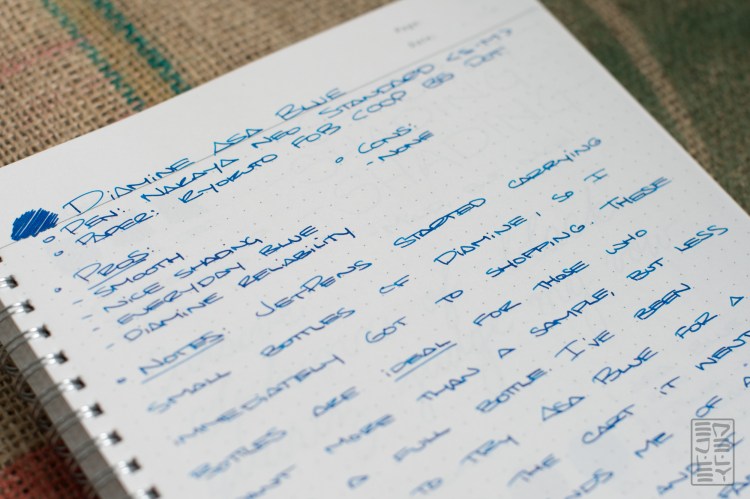 Page:
Date:
DIAMINE ASA BLUE
PEN: NAKAYA NEO STANDARD
PAPER: KYOKUTO FOB COOP B5 DOT
PROS:
- SMOOTH
- NICE SHADING
- EVERYDAY BLUE
- DIAMINE RELIABILITY
CONS:
- NONE
NOTES: JETPENS STARTED CARRYING
SMALL BOTTLES OF DIAMINE, SO I
IMMEDIATELY GOT TO SHOPPING. THESE
BOTTLES ARE IDEAL FOR THOSE WHO
WANT MORE THAN A SAMPLE, BUT LESS
A FULL BOTTLE. I'VE BEEN
TO TRY ASA BLUE FOR A
THE CART IT WENT
ME OF A